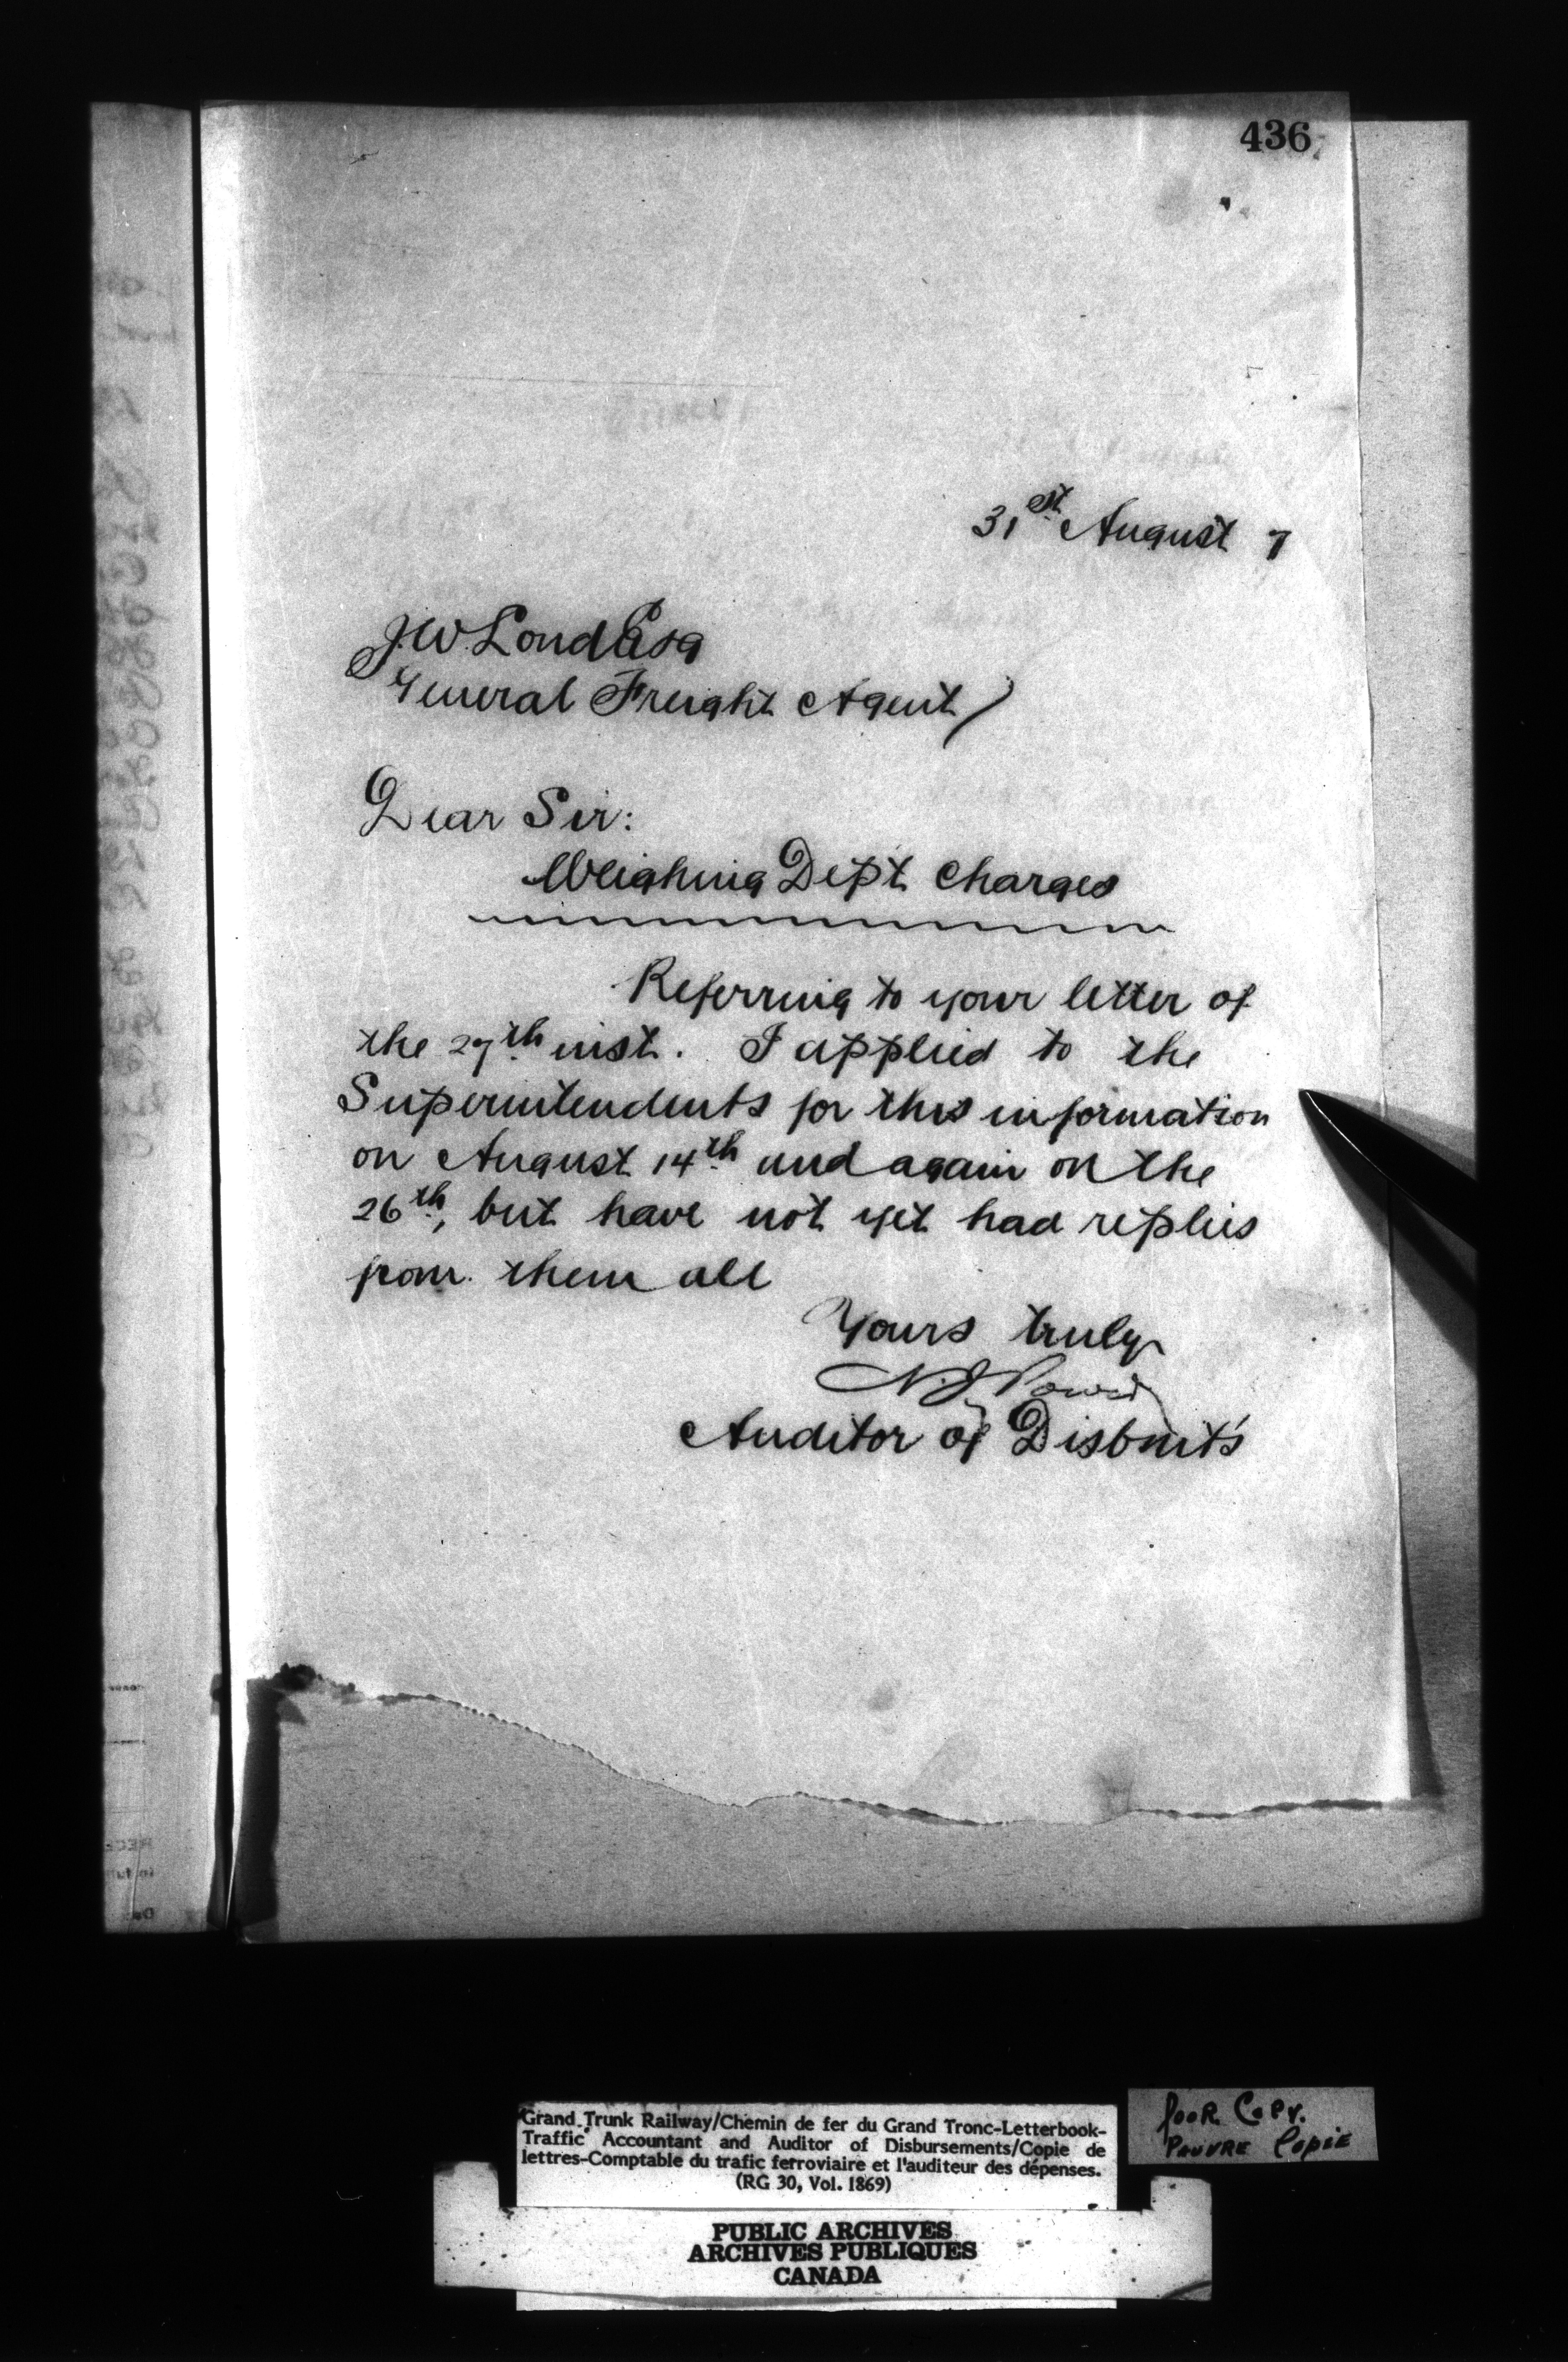 436
31st August 7
J.W. Loud Esq
General Freight Agent
Dear Sir:
Weighing Dept. Charges
Referring to your letter of
the 27th inst. I applied to the
Superintendents for this information
on August 14th and again on the
26th, but have not yet had replies
from them all
Yours truly
N.J. Power
Auditor of Disbmts
Grand Trunk Railway/Chemin de fer du Grand Tronc-Letterbook-
Traffic Accountant and Auditor of Disbursements/Copie de
lettres-Comptable du trafic ferroviaire et l'auditeur des dépenses.
(RG 30, Vol. 1869)
Poor Copy.
Pauvre Copie
PUBLIC ARCHIVES
ARCHIVES PUBLIQUES
CANADA